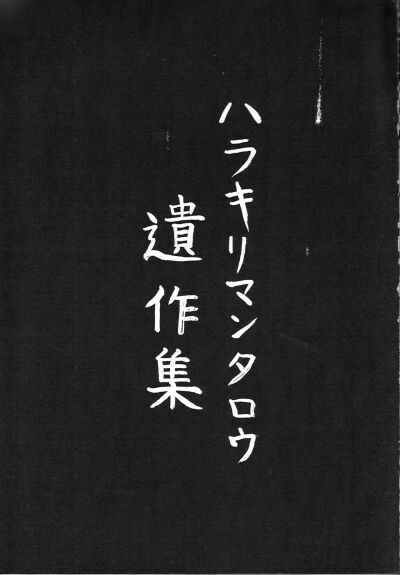 ハラキリマンタロウ
遺作集